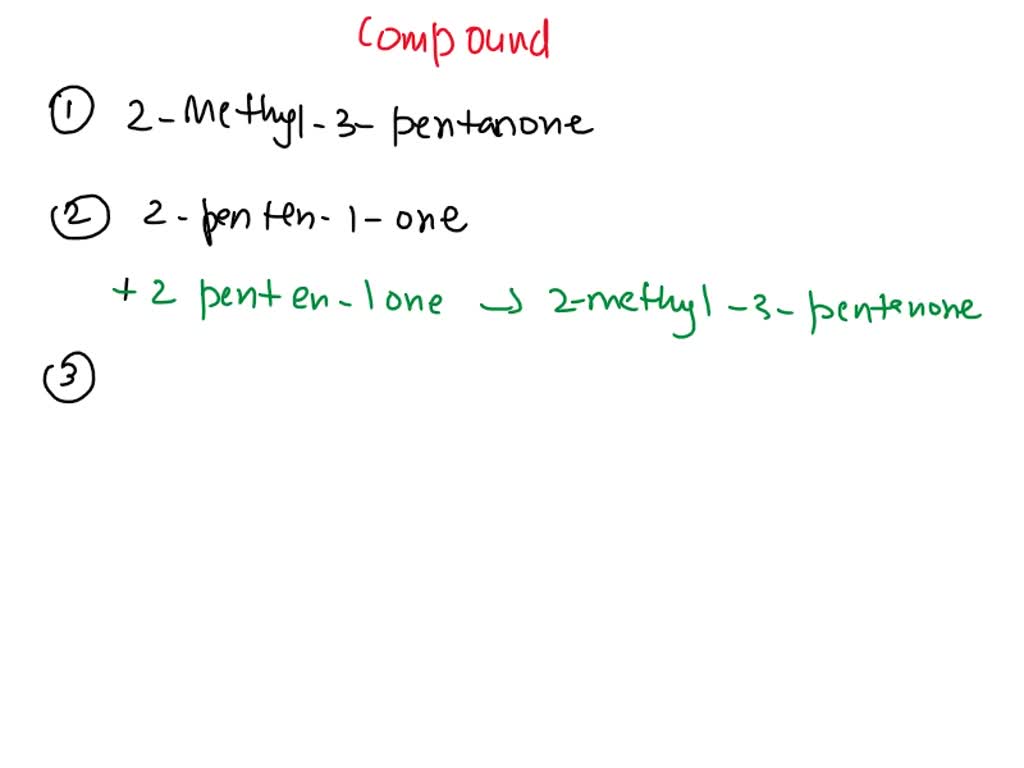 Compound
① 2-Methyl-3-pentanone
② 2-penten-1-one
+ 2 penten-1one → 2-methyl-3-pentanone
③